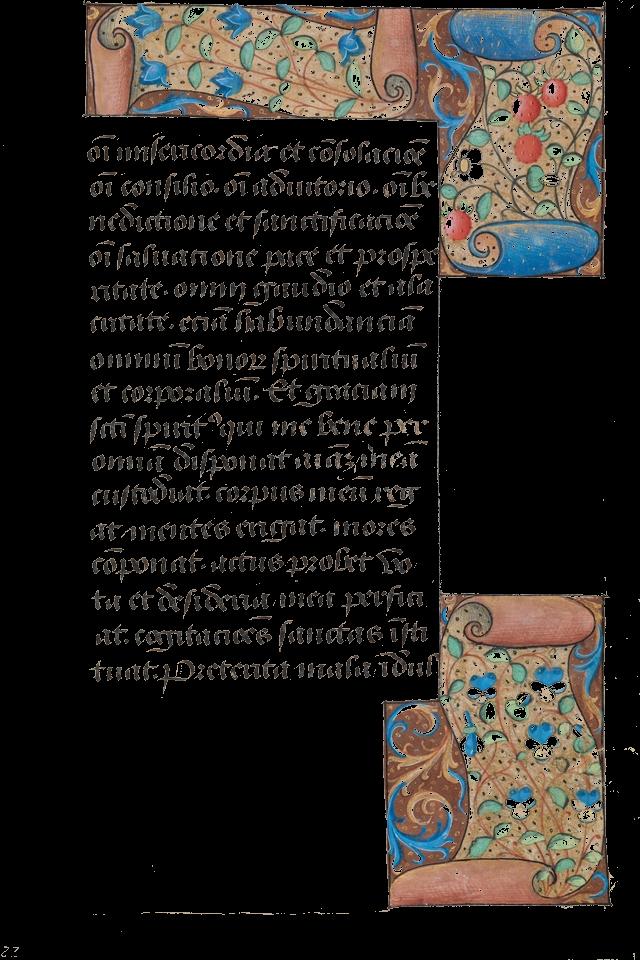 oī misericordia et cōsolacioē
oī consilio. oī adiutorio. oī be
nedictione et sanctificacioē
oī saluatione pace et prospe
ritate. omni gaudio et ala
critate. eciā habundanciā
omniū bonoꝝ spiritualiū
et corporaliū. Et graciam
sctī spūit qui me bene per
omnia disponat aīaꝫ meā
custodiat. corpus meū reg
at mentes erigat. mores
cōponat. actus probet vo
ta et desideria mea perfici
at. cogitacioēs sanctas īsti
tuat. Preterita mala īdul
22